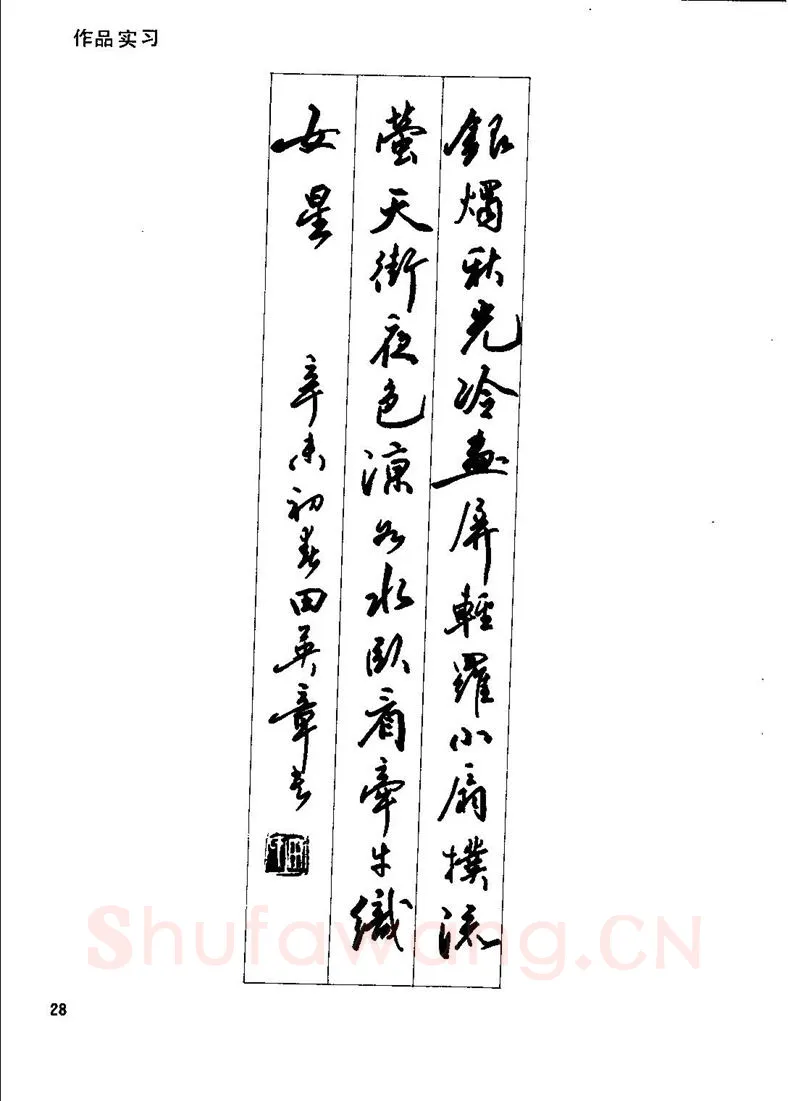 作品实习
銀燭秋光冷畫屏輕羅小扇撲流
螢天街夜色涼如水臥看牽牛織
女星 辛未初春田英章书
Shufawang.CN
28